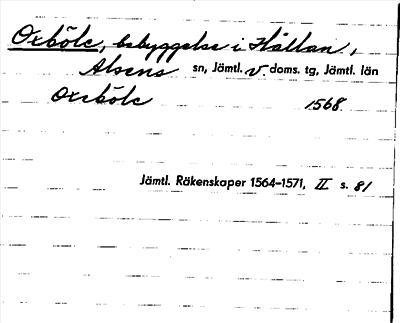 Oxböle, bebyggelse i Hållan,
Alsens sn, Jämtl. V. doms. tg, Jämtl. län
Oxeböle 1568.
Jämtl. Räkenskaper 1564–1571, II s. 81